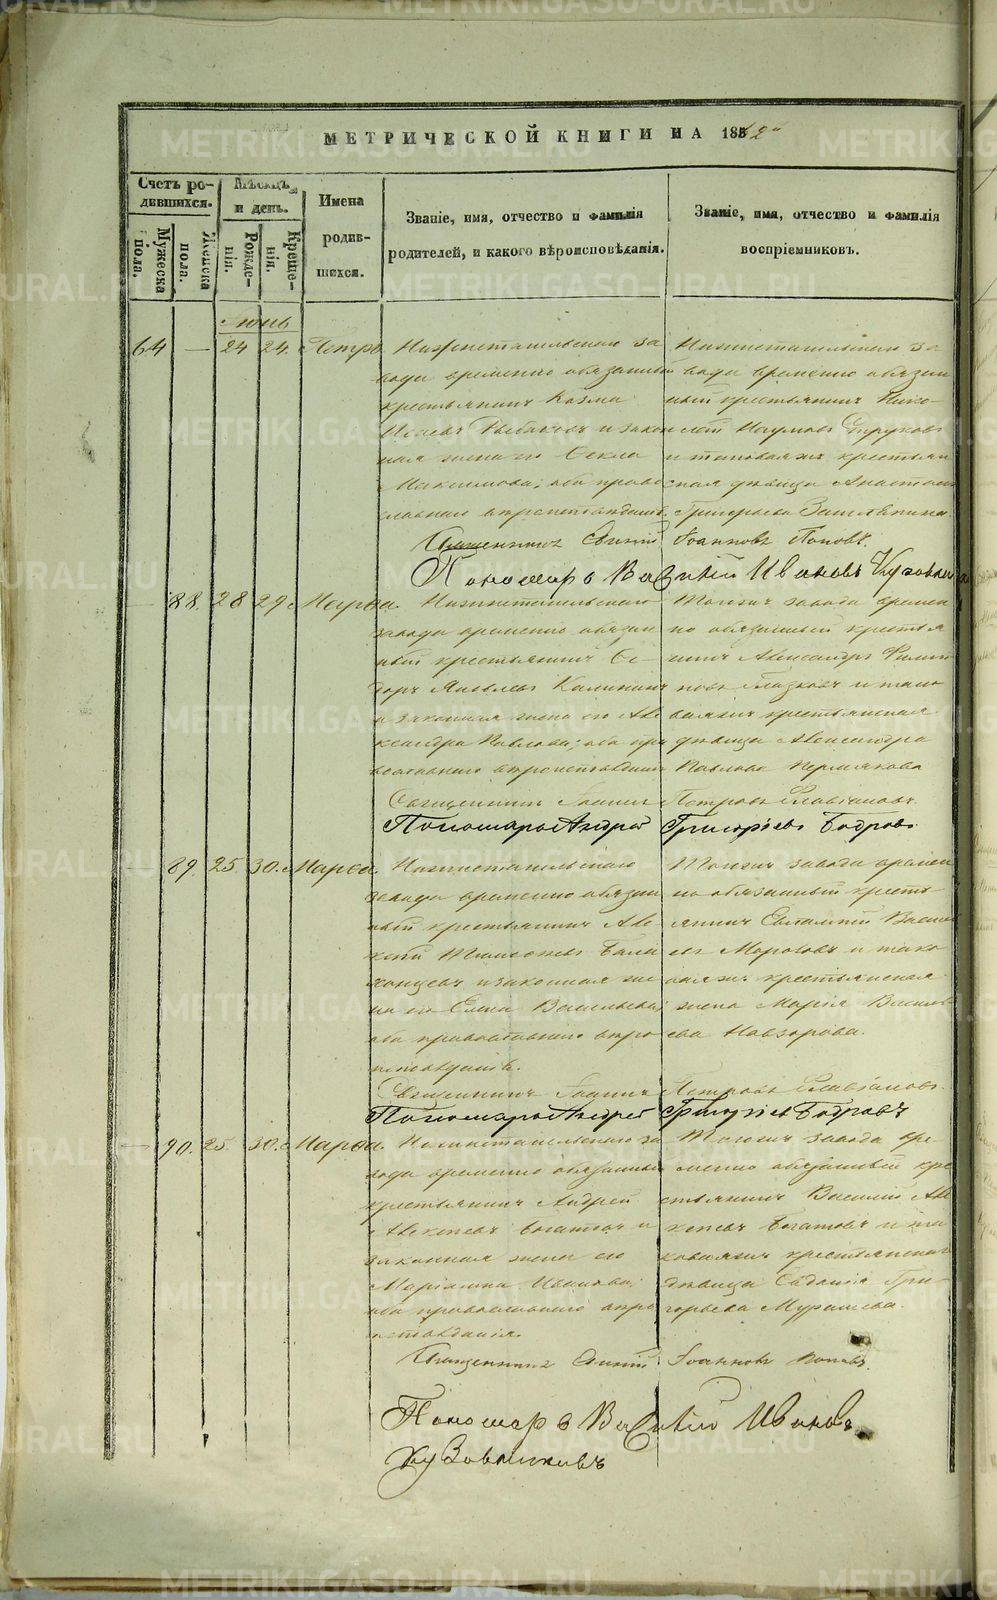 МЕТРИЧЕСКОЙ КНИГИ НА 1862
Счетъ родившихся.
Мужеска пола.
Женска пола.
Мѣсяцъ и день.
Рожденія.
Крещенія.
Имена родившихся.
Званіе, имя, отчество и фамилія родителей, и какого вѣроисповѣданія.
Званіе, имя, отчество и фамилія воспріемниковъ.
Іюнь
64 — 24 24. Петръ
Нижнетагильскаго за
вода временно обязанный
крестьянинъ Козма
Исаевъ Рыбаковъ и закон
ная жена его Фекла
Максимова; оба право
славнаго вѣроисповѣданія
Нижнетагильскаго за
вода временно обязан
ный крестьянинъ Нико
лай Наумовъ
и таковаяжъ крестьян
ская дѣвица Анастасія
Григорьева
Священникъ Іоанновъ Поповъ.
Пономарь Василій Ивановъ Кузовниковъ
— 88. 28 29. Марѳа.
Нижнетагильскаго
завода временно обязан
ный крестьянинъ Ѳе-
доръ Яковлевъ Калининъ
и законная жена его Але
ксандра Павлова; оба пра
вославнаго вѣроисповѣданія
Тогожъ завода времен
но обязанный крестья
нинъ Александръ Филип
повъ Глазковъ и тако
ваяжъ крестьянская
дѣвица Александра
Павлова Пермякова
Священникъ Іоаннъ Петровъ Славнинъ.
Пономарь Андрей Григорьевъ Бобровъ
89. 25. 30. Марѳа.
Нижнетагильскаго
завода временно обязан
ный крестьянинъ Але
ксѣй Тимофеевъ Бала
ханцевъ и законная же
на его Елена Васильева;
оба православнаго вѣро
исповѣданія.
Тогожъ завода времен
но обязанный кресть
янинъ Евлампій Василь
евъ Морозовъ и тако
ваяжъ крестьянская
жена Марія Василь
ева Назарова.
Священникъ Іоаннъ Петровъ
Пономарь Андрей Григорьевъ Бобровъ
— 90. 25. 30. Марѳа.
Нижнетагильскаго за
вода временно обязанный
крестьянинъ Андрей
Алексѣевъ Богатовъ и
законная жена его
Маріамна Иванова;
оба православнаго вѣро
исповѣданія.
Тогожъ завода вре-
менно обязанный кре
стьянинъ Василій Але
ксѣевъ Богатовъ и та
коваяжъ крестьянская
дѣвица Евдокія Гри-
горьева Мурашева.
Священникъ Іоанновъ Поповъ.
Пономарь Василій Ивановъ
Кузовниковъ
METRIKI.GASO-URAL.RU